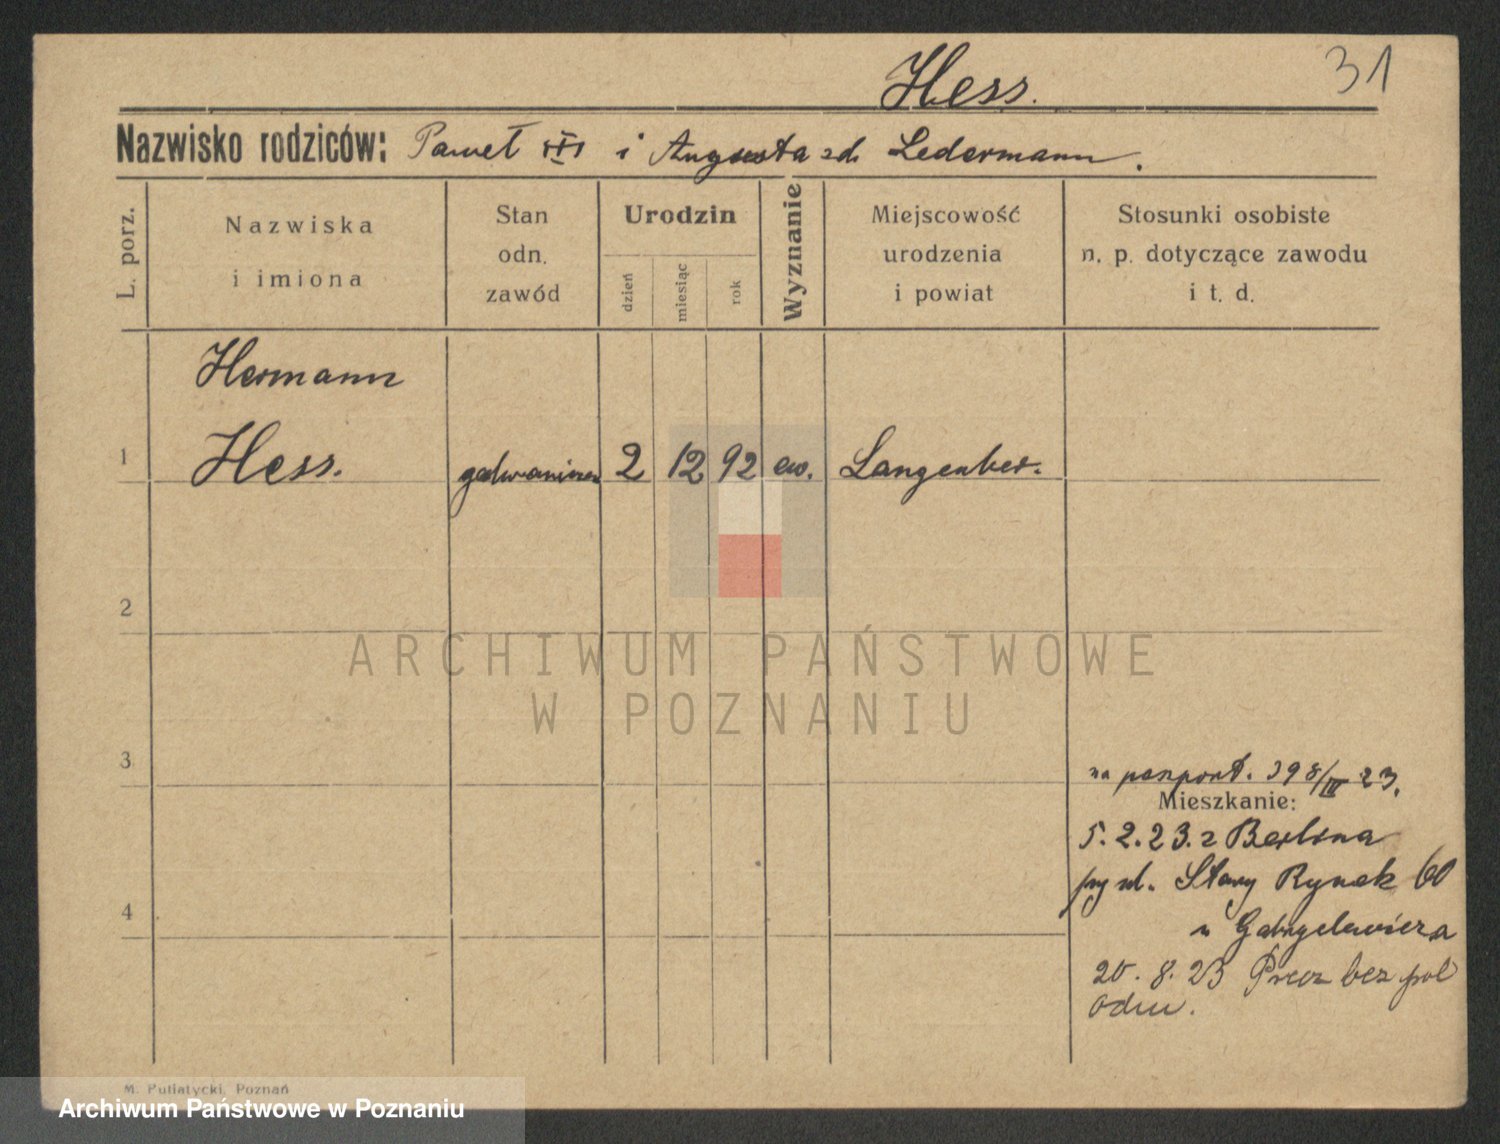 Hess. 31
Nazwisko rodziców: Paweł i Augusta zd. Ledermann.
L. porz.
Nazwiska
i imiona
Stan
odn.
zawód
Urodzin
dzień
miesiąc
rok
Wyznanie
Miejscowość
urodzenia
i powiat
Stosunki osobiste
n. p. dotyczące zawodu
i t. d.
Hermann
1 Hess. 2 12 92 ew. Langenber.
2
ARCHIWUM PAŃSTWOWE
W POZNANIU
3
na paszport. 398/III 23.
Mieszkanie:
5.2.23. z Berlina
Stary Rynek 60
u Gabryelewicza
4
20.8.23 Precz bez pol
odm.
M. Putiatycki, Poznań
Archiwum Państwowe w Poznaniu